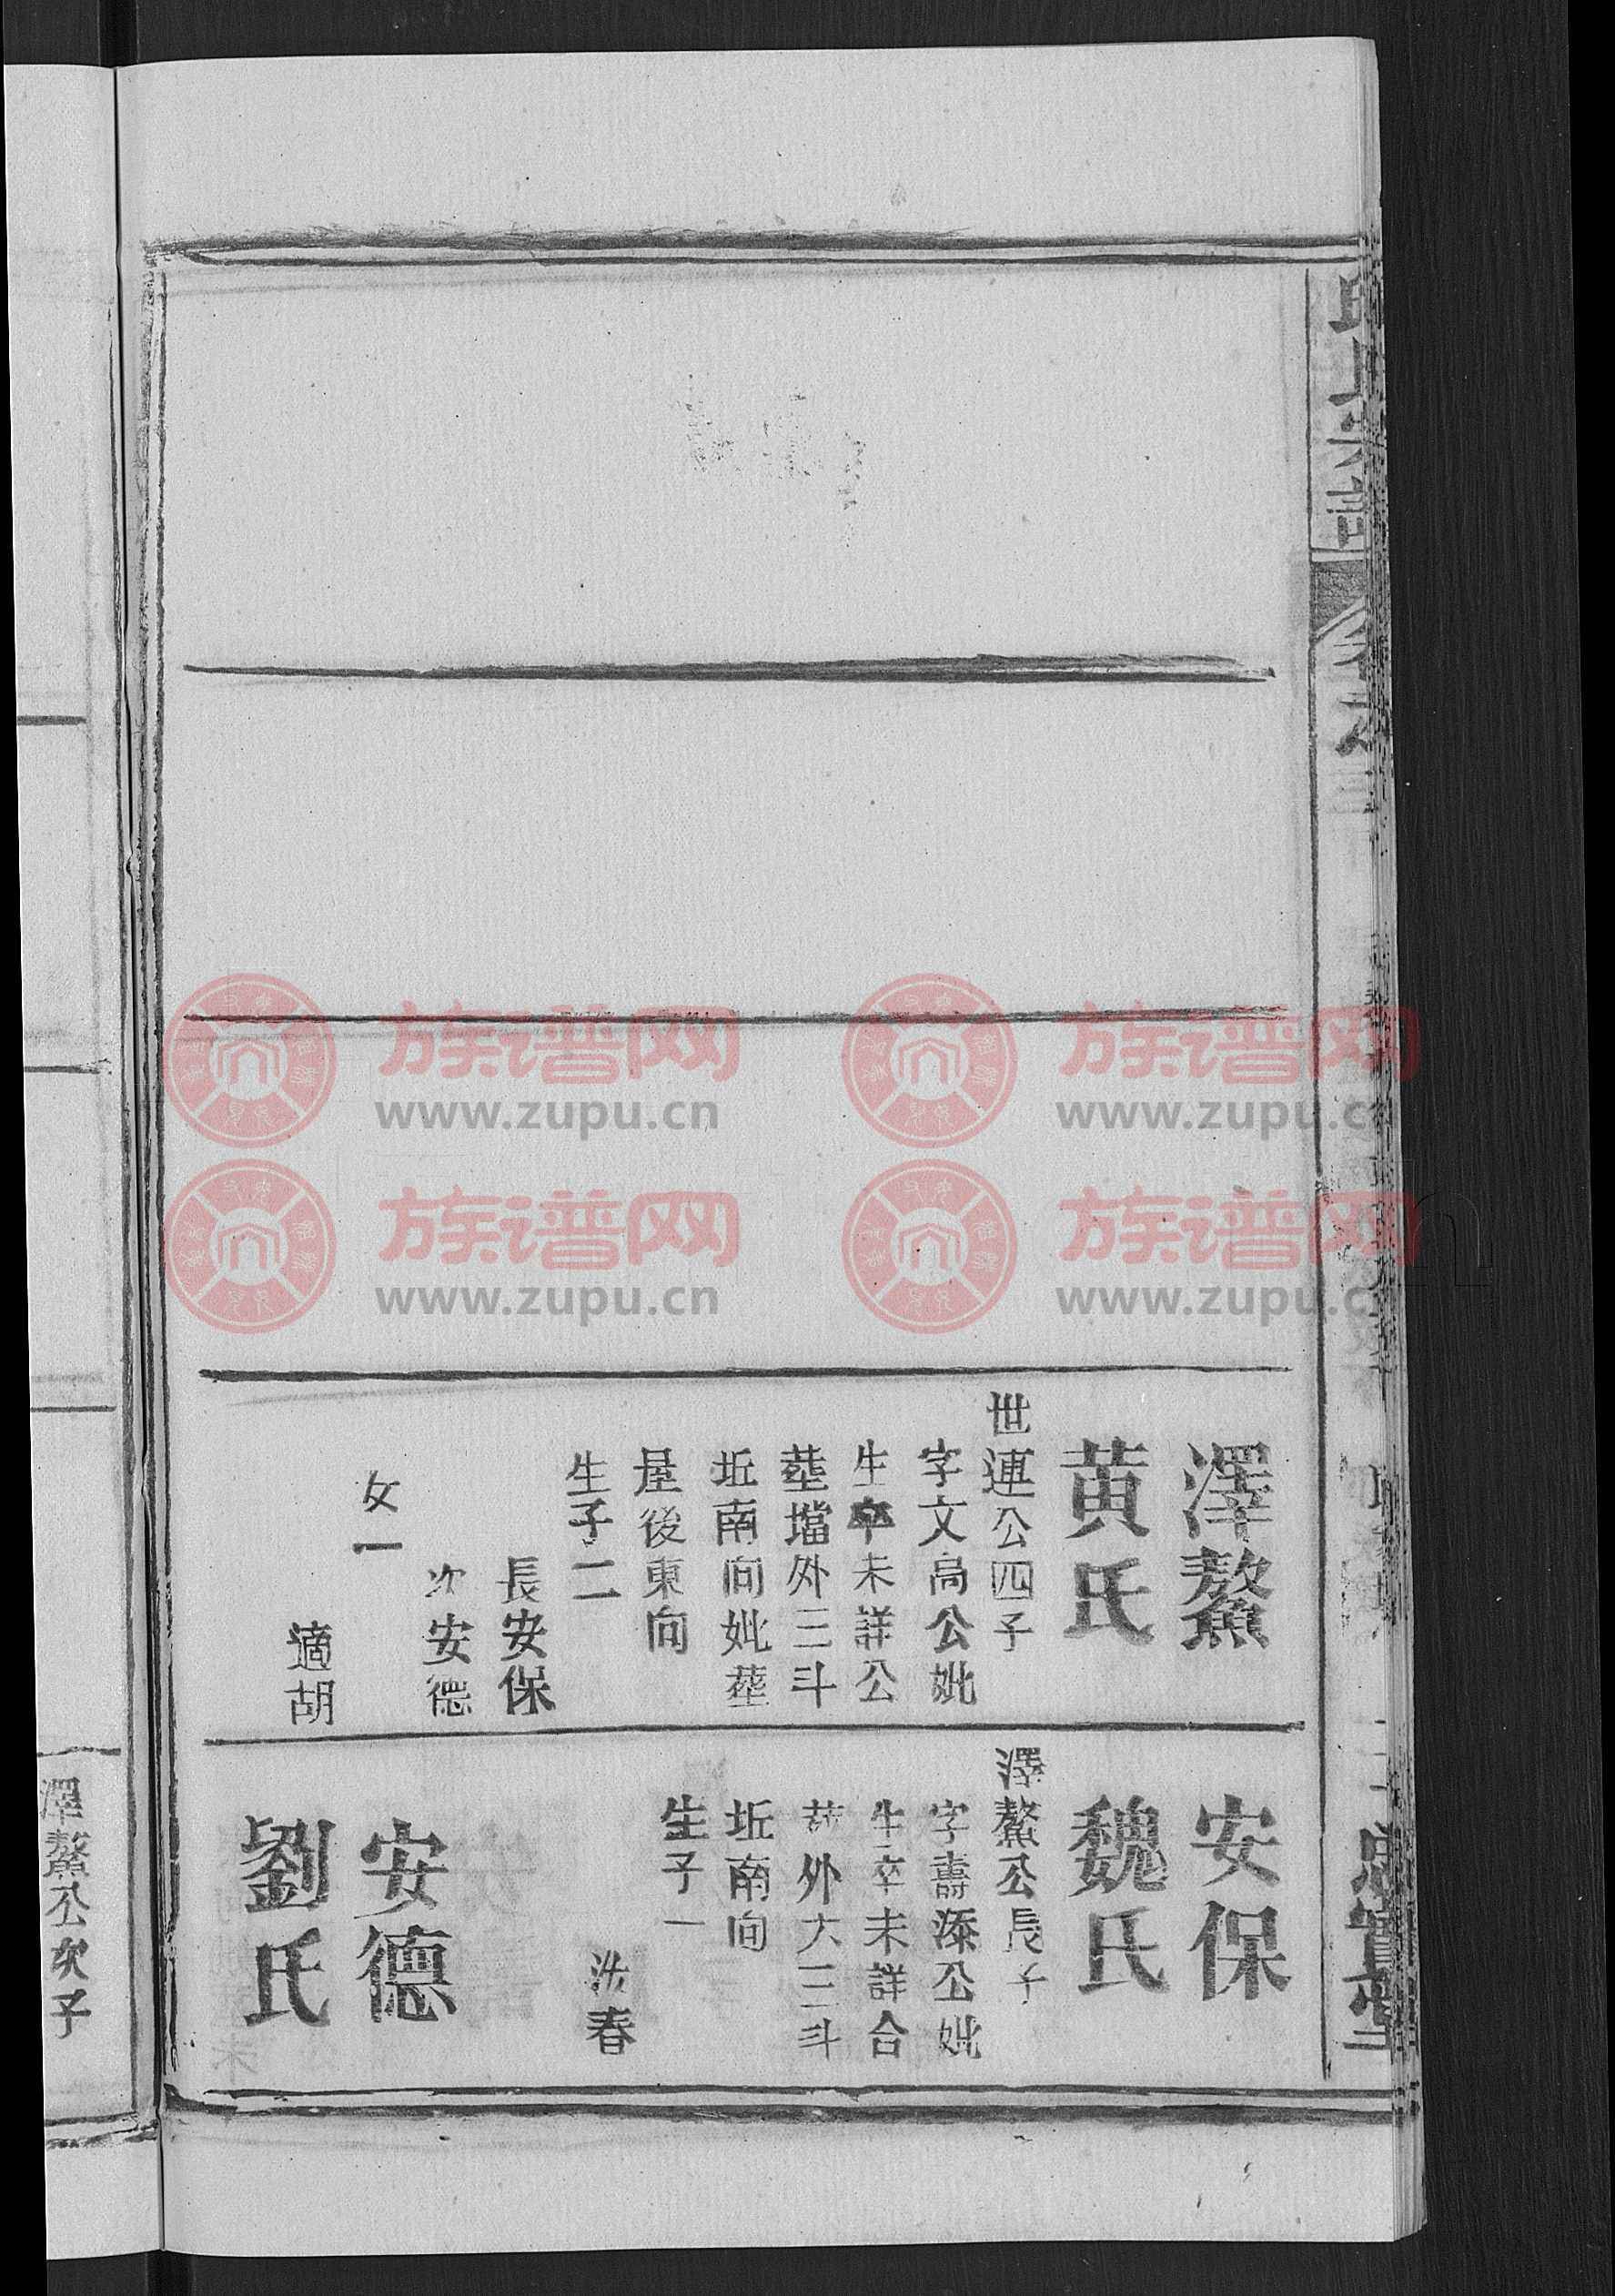 澤鰲
黄氏
世連公四子
字文高公妣
生卒未詳公
塟壋外三斗
坵南向妣塟
屋後東向
生子二
長安保
次安德
女一
適胡
安保
魏氏
澤鰲公長子
字壽溙公妣
生卒未詳合
外大三斗
坵南向
生子一
春
安德
劉氏
澤鰲公次子
族谱网
www.zupu.cn
族谱网
www.zupu.cn
族谱网
www.zupu.cn
族谱网
www.zupu.cn